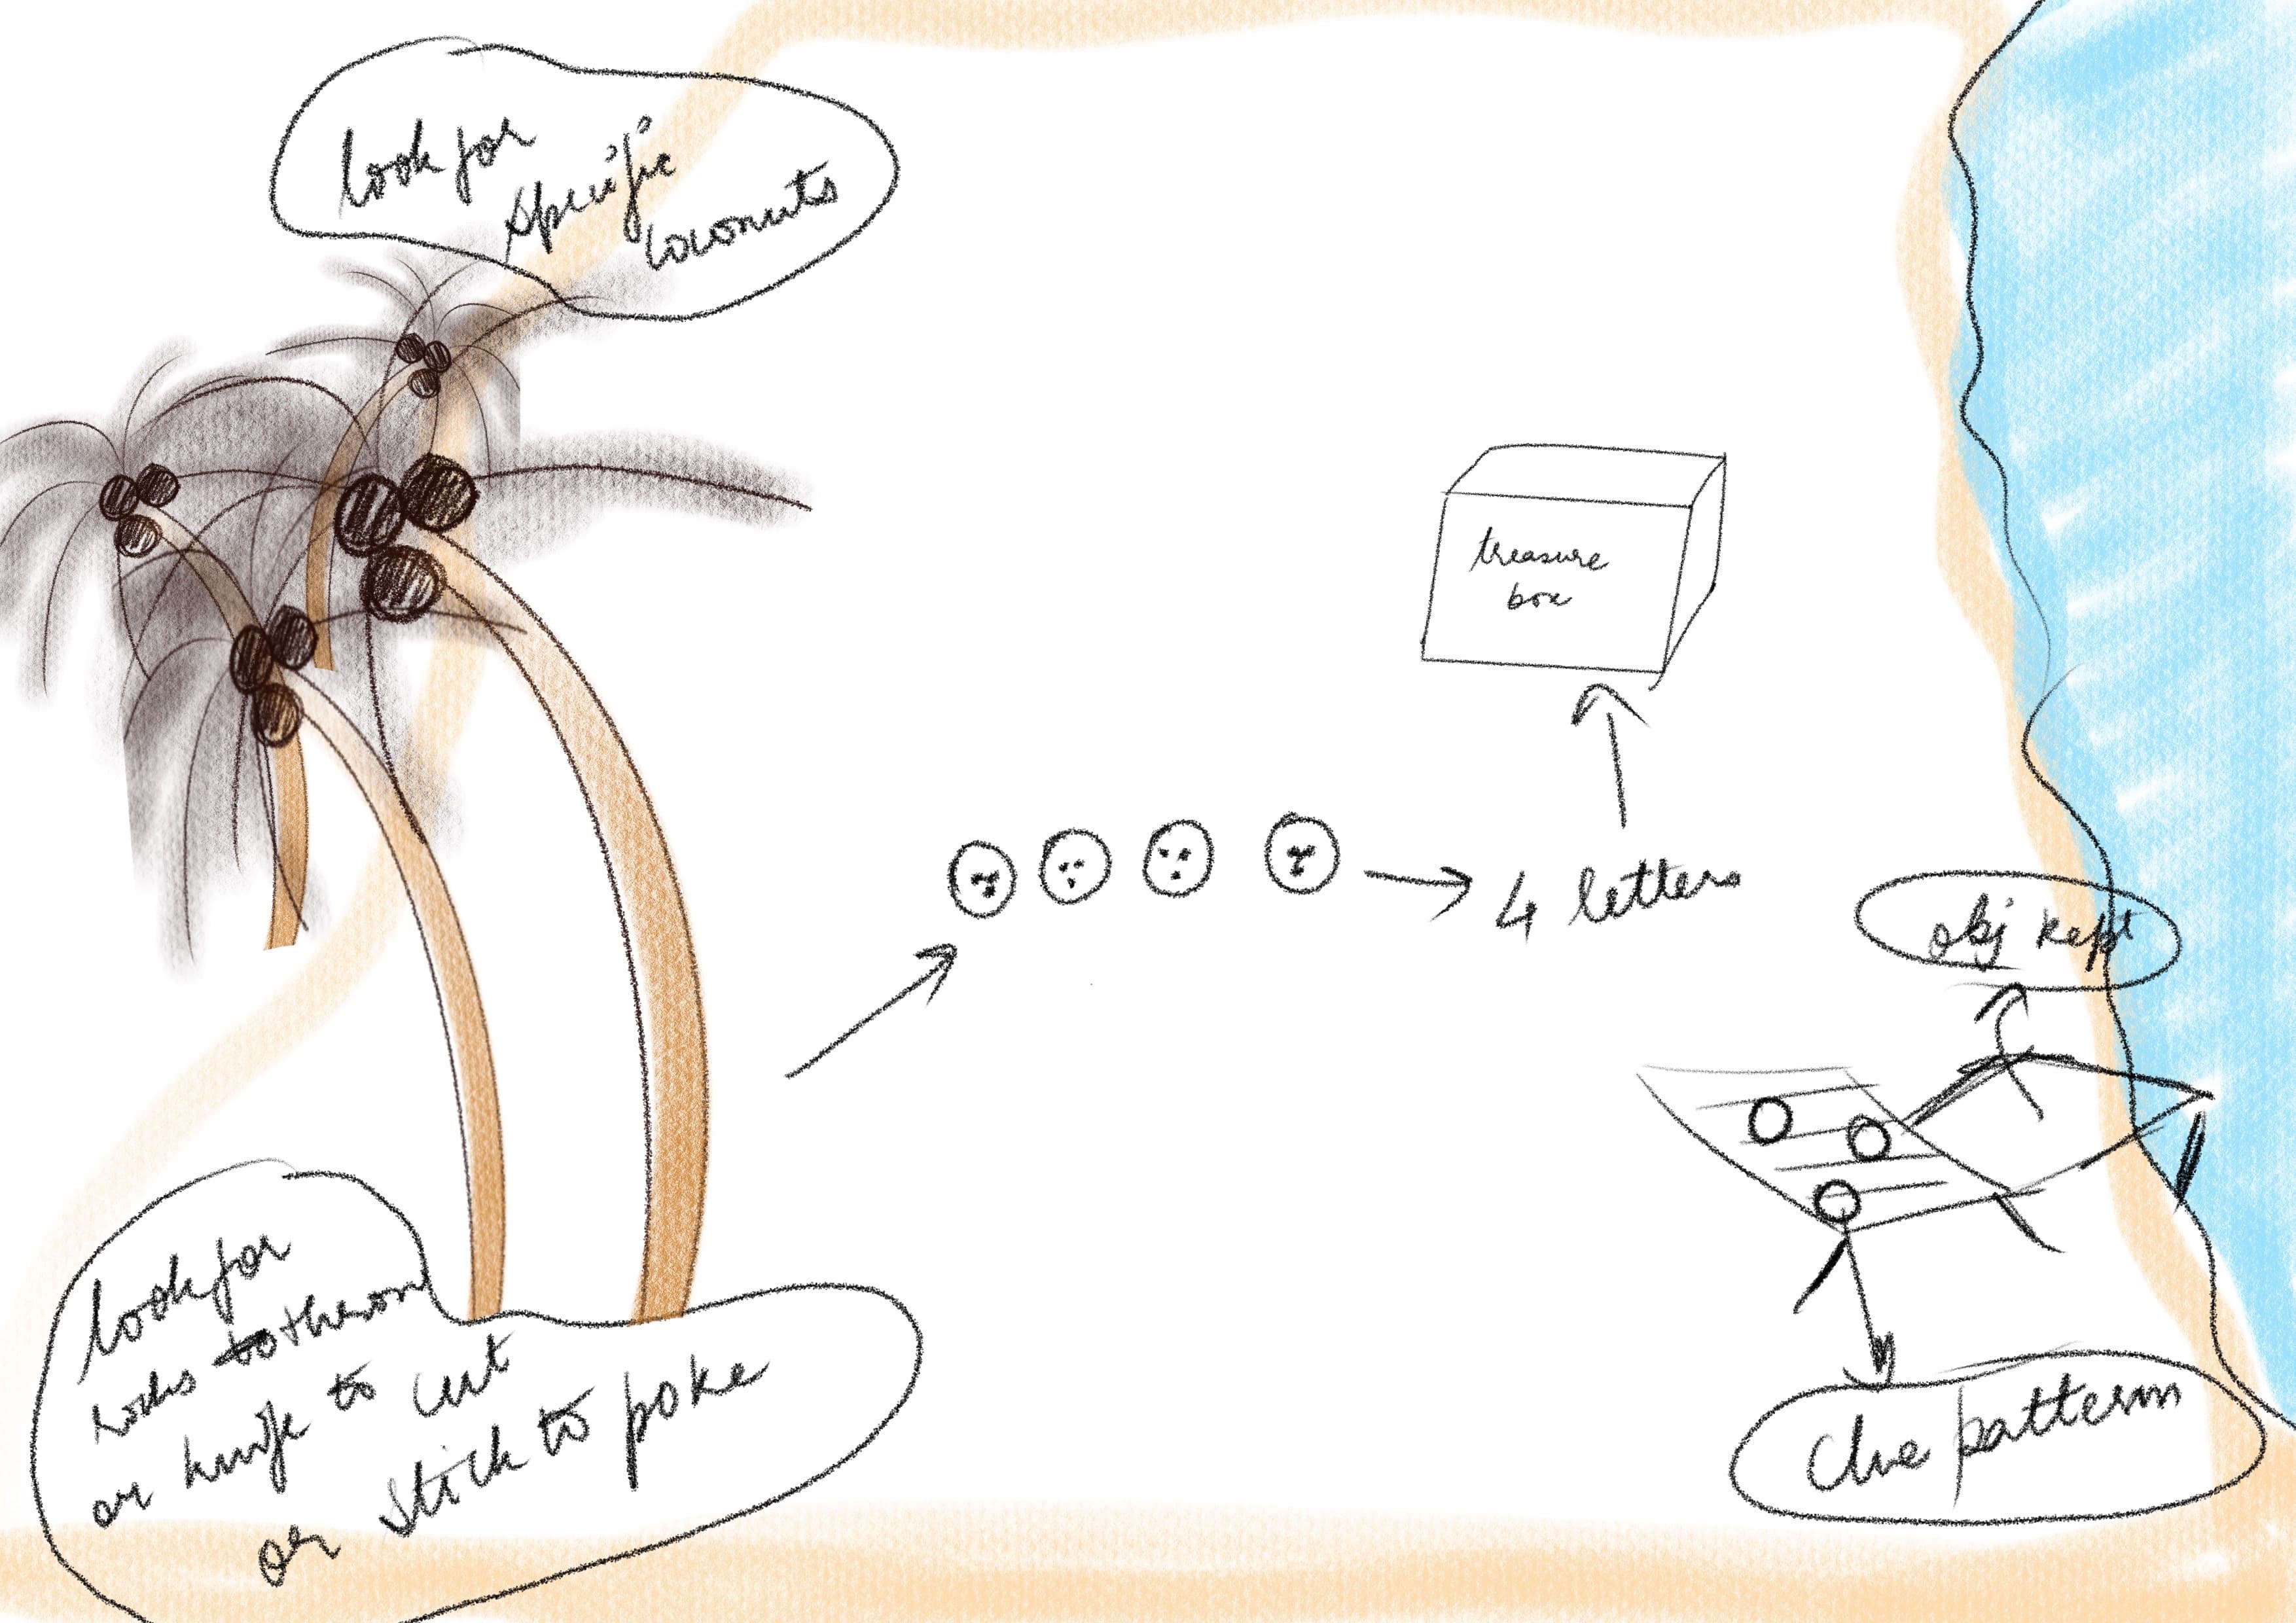 look for
specific
coconuts
treasure
box
4 letters
obj kept
look for
rocks to throw
or knife to cut
or stick to poke
Clue pattern